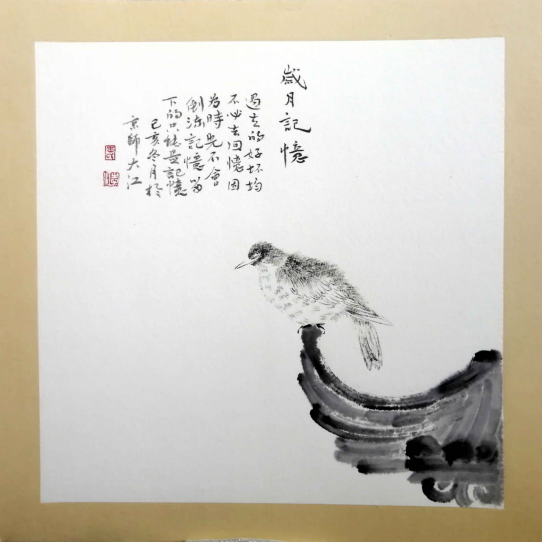 歲月記憶
過去的好坏均
不必去回憶因
為時光不會
倒流記憶留
下的只能是記憶
己亥冬月於
京師大江